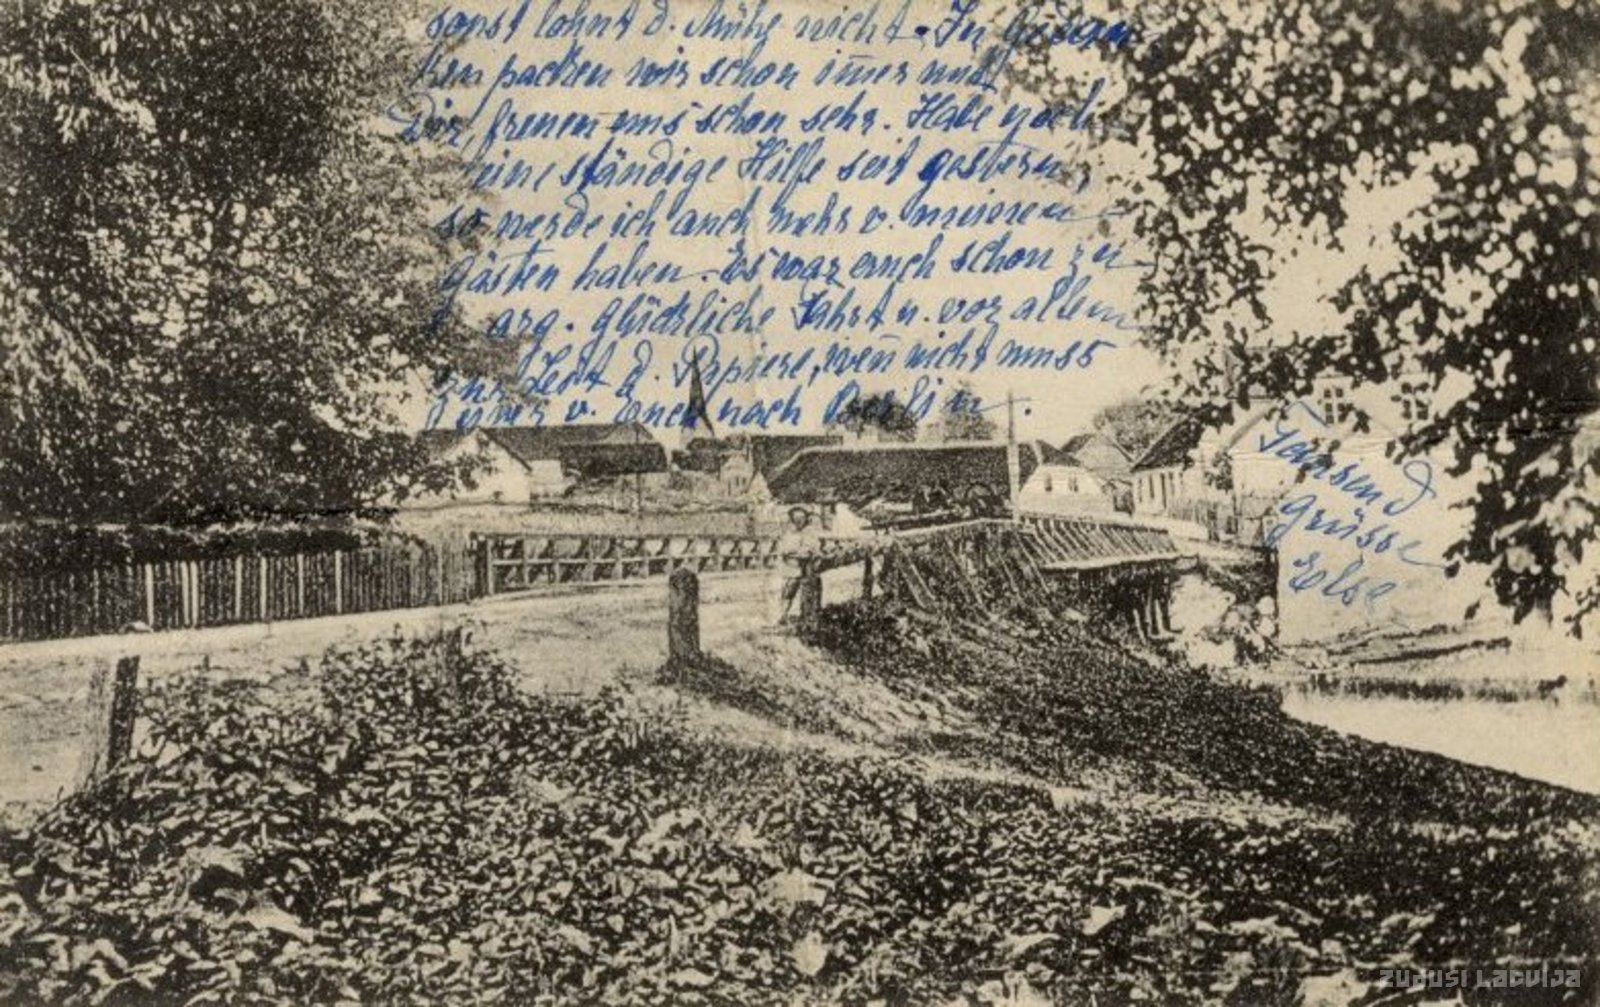 sonst lohnt d. Mühe nicht. In Gedan-
ken packen wir schon imer mit
Dir, freuen uns schon sehr. Habe noch
eine ständige Hilfe seit gestern,
so werde ich auch mehr v. meinen
Gästen haben. Es war auch schon zu
arg. Glückliche Fahrt u. vor allem
zur Zeit d. Papiere, wen nicht muss
v. Euch nach Berlin.
Tausend
Grüsse
Else
ZUDUSI LATVIJA